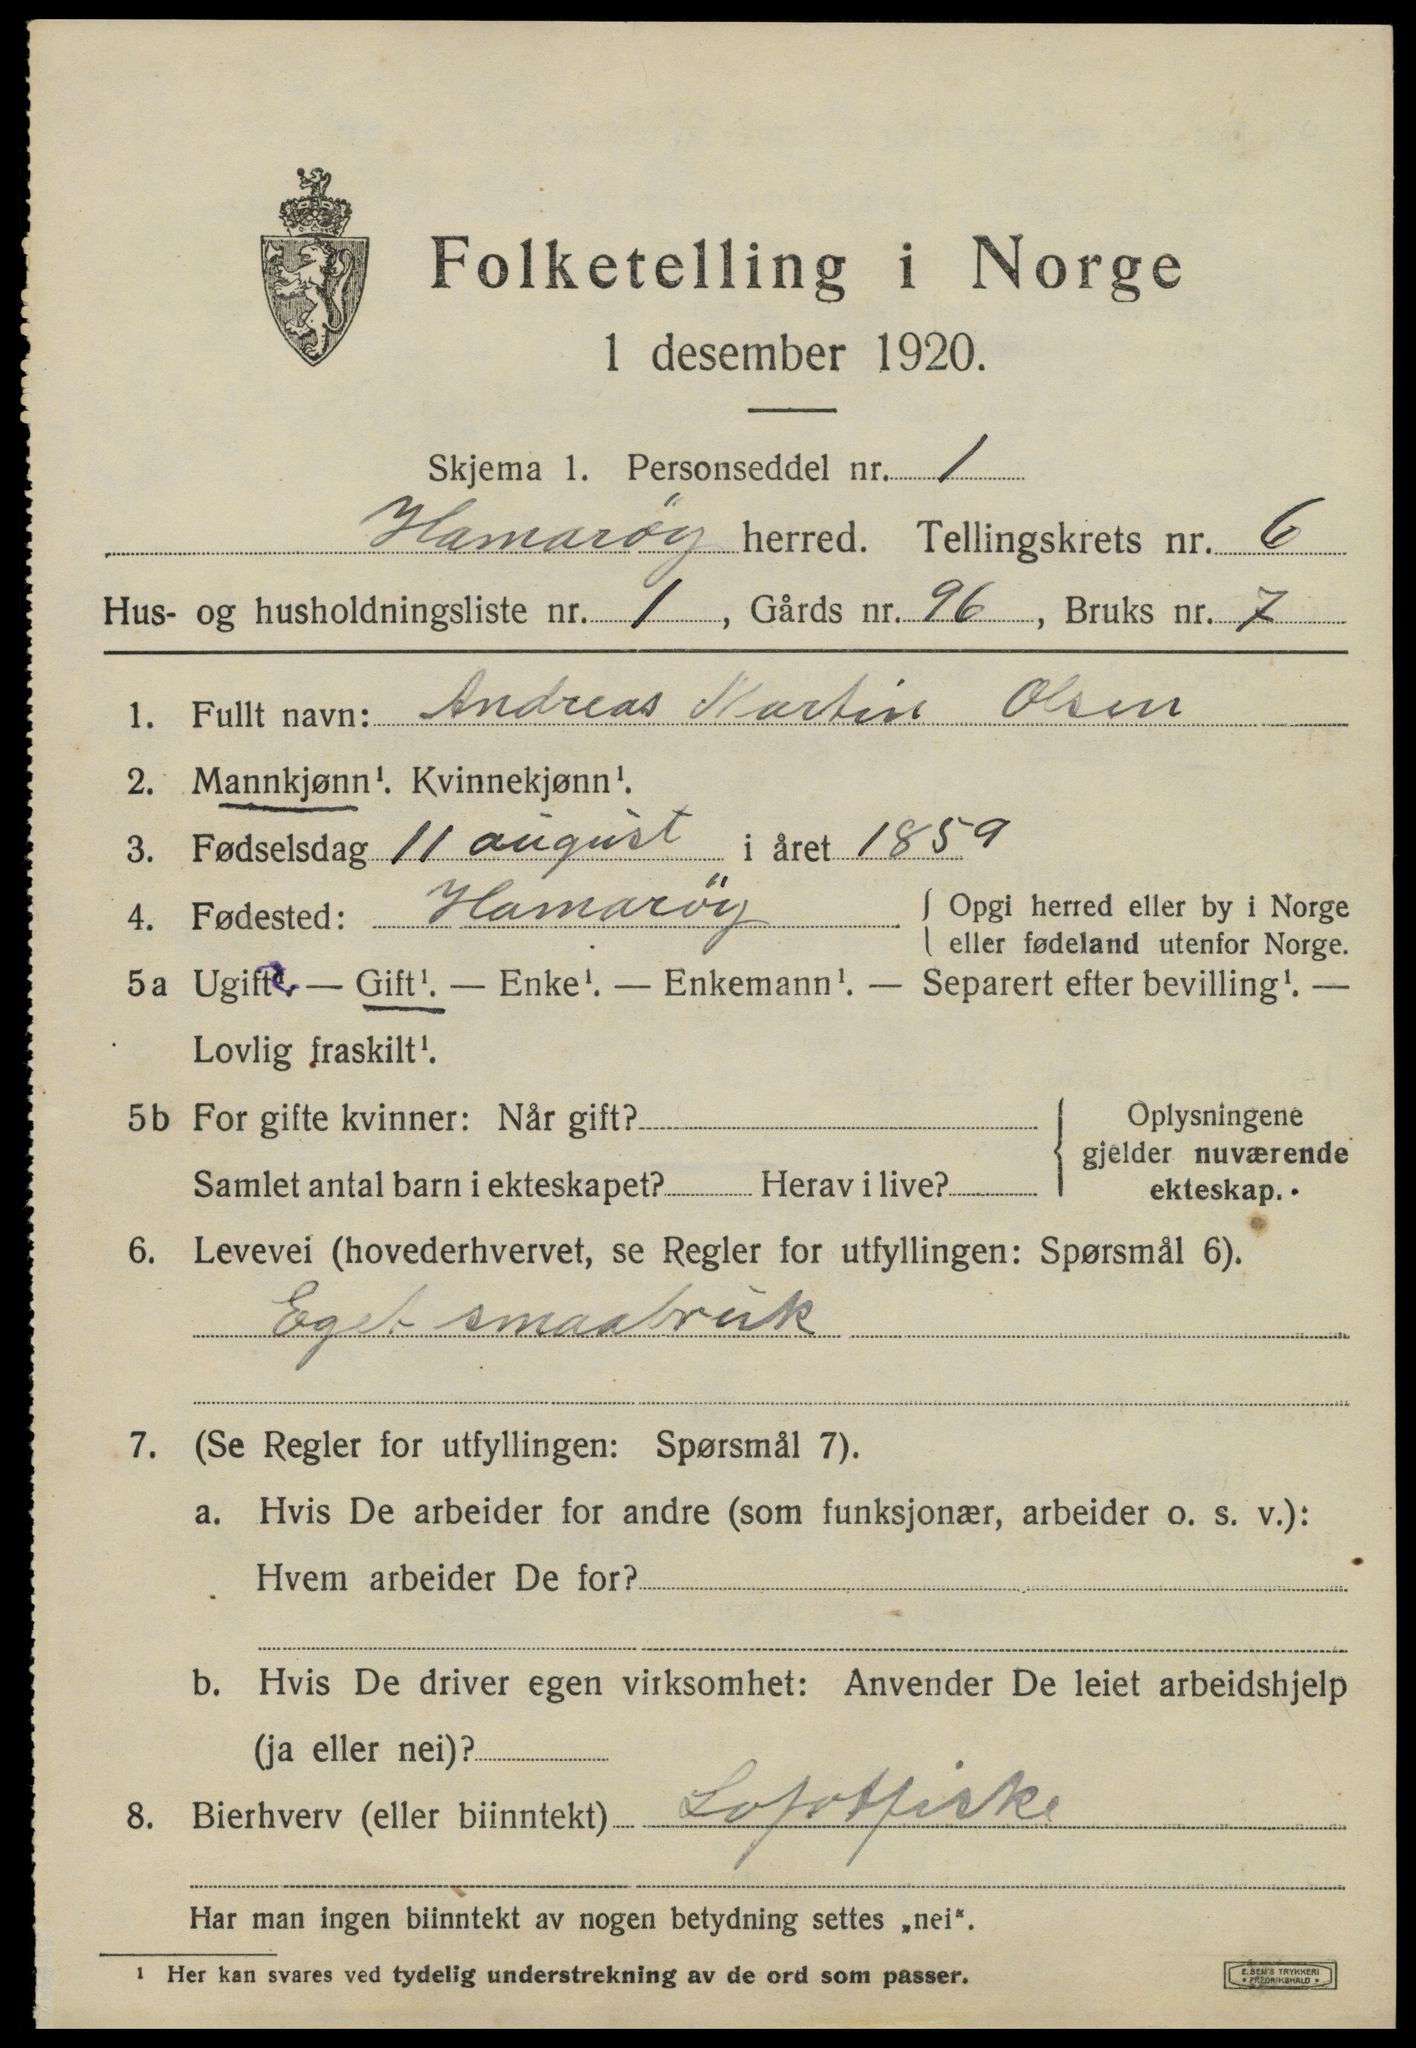 Folketelling i Norge
1 desember 1920.
Skjema 1. Personseddel nr. 1
Hamarøy herred. Tellingskrets nr. 6
Hus- og husholdningsliste nr. 1, Gårds nr. 96, Bruks nr. 7
1. Fullt navn: Andreas Martin Olsen
2. Mannkjønn¹. Kvinnekjønn¹.
3. Fødselsdag 11 august i året 1859
4. Fødested: Hamarøy { Opgi herred eller by i Norge
eller fødeland utenfor Norge.
5a Ugift¹. — Gift¹. — Enke¹. — Enkemann¹. — Separert efter bevilling¹. —
Lovlig fraskilt¹.
5b For gifte kvinner: Når gift? { Oplysningene
gjelder nuværende
Samlet antal barn i ekteskapet? Herav i live? ekteskap.
6. Levevei (hovederhvervet, se Regler for utfyllingen: Spørsmål 6).
Eget smaabruk
7. (Se Regler for utfyllingen: Spørsmål 7).
a. Hvis De arbeider for andre (som funksjonær, arbeider o. s. v.):
Hvem arbeider De for?
b. Hvis De driver egen virksomhet: Anvender De leiet arbeidshjelp
(ja eller nei)?
8. Bierhverv (eller biinntekt) Lofotfiske
Har man ingen biinntekt av nogen betydning settes „nei".
¹ Her kan svares ved tydelig understrekning av de ord som passer.
E. SEM'S TRYKKERI
• FREDRIKSHALD •